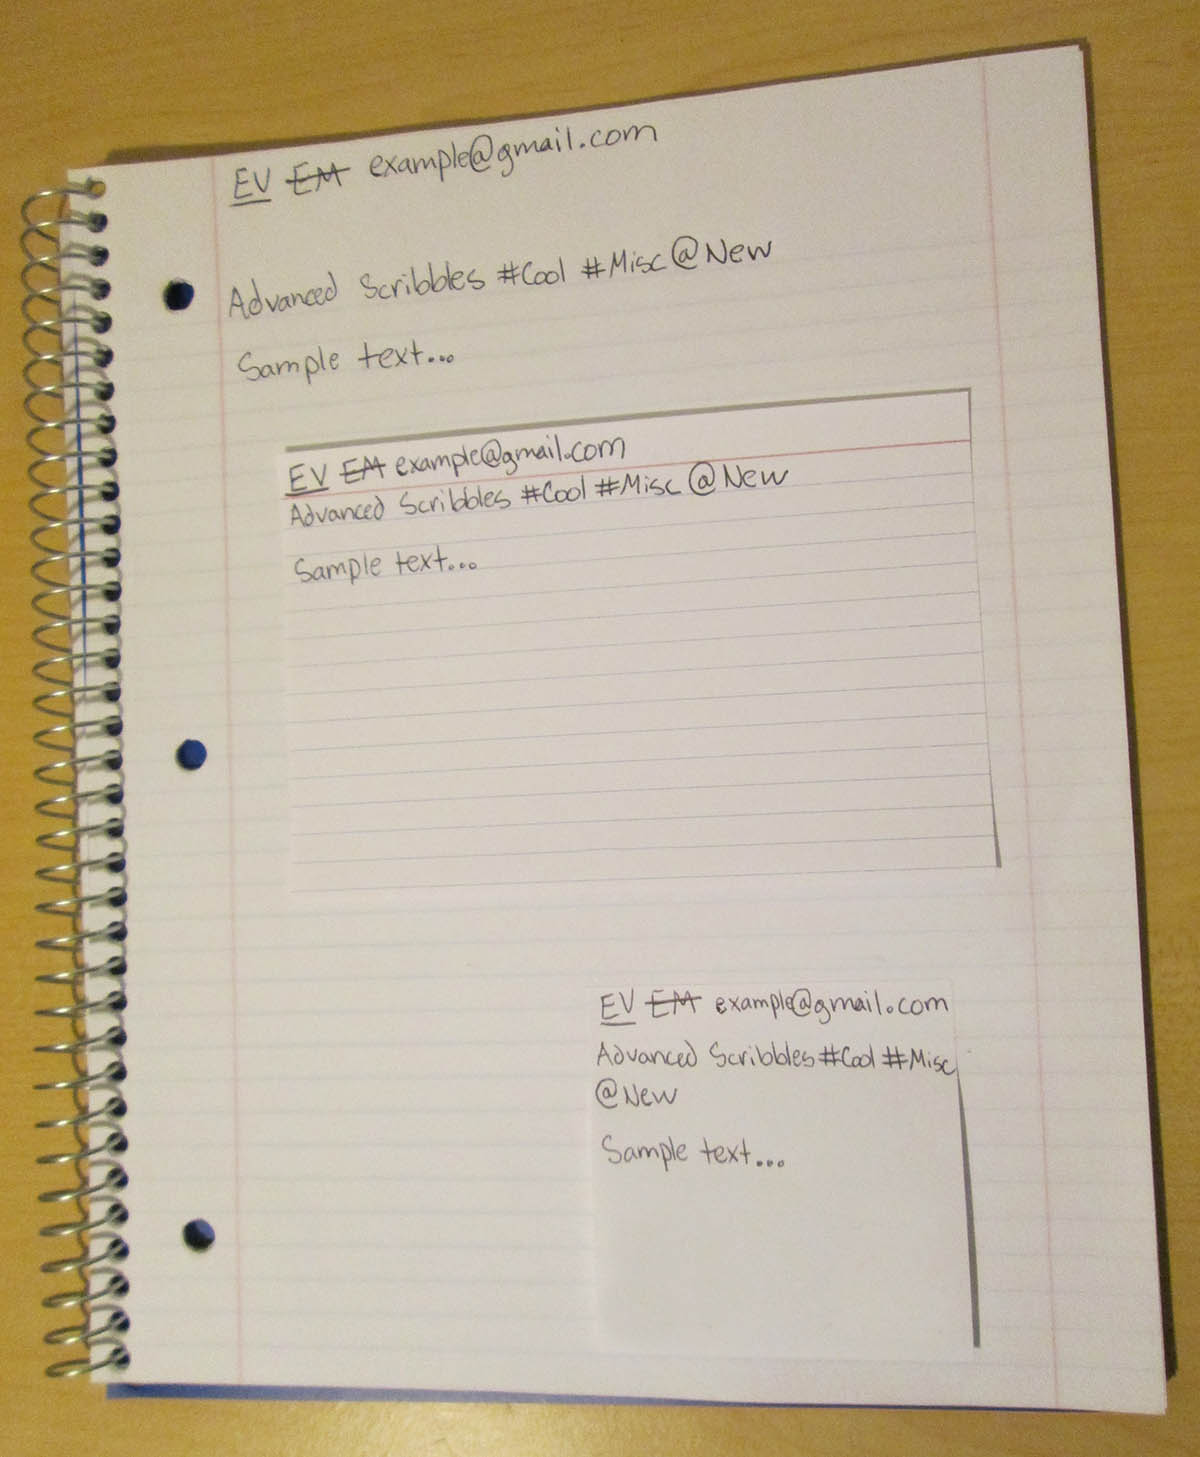 EV EM example@gmail.com
Advanced Scribbles #Cool #Misc @New
Sample text...
EV EM example@gmail.com
Advanced Scribbles #Cool #Misc @New
Sample text...
EV EM example@gmail.com
Advanced Scribbles #Cool #Misc
@New
Sample text...